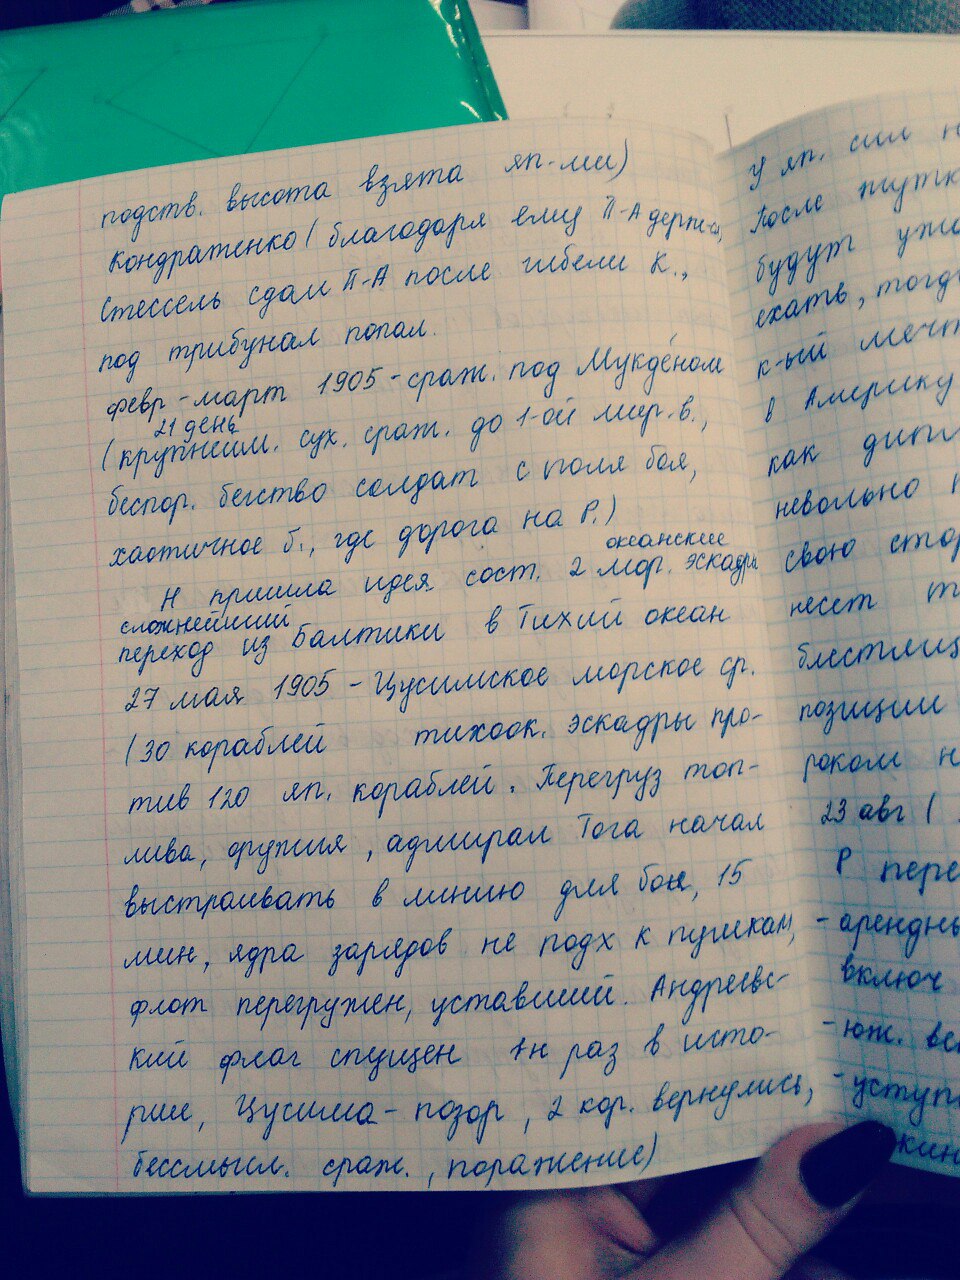 подств. высота взята яп-ми)
Кондратенко (благодаря ему П-А держ-ся,
Стессель сдал П-А после гибели К.,
под трибунал попал.
февр-март 1905 - сраж. под Мукде́ном
21 день
(крупнейш. сух. сраж. до 1-ой мир. в.,
беспор. бегство солдат с поля боя,
хаотичное б., где дорога на Р.)
океанские
Н пришла идея сост. 2 мор. эскадры
сложнейший
переход из Балтики в Тихий океан
27 мая 1905 - Цусимское морское ср.
(30 кораблей тихоок. эскадры про-
тив 120 яп. кораблей. Перегруз топ-
лива, оружия, адмирал Тога начал
выстраивать в линию для боя, 15
мин, ядра зарядов не подх к пушкам,
флот перегружен, уставший. Андреевс-
кий флаг спущен 1н раз в исто-
рии, Цусима - позор, 2 кор. вернулись,
бессмысл. сраж., поражение)
У яп. сил н
После
будут
ехать, тогд
к-ый меч
в Америку
как дипл
невольно
свою стор
несет
блестящ
позиции
роком н
23 авг (
Р пере
- арендн
включ
- юж.
- уступ